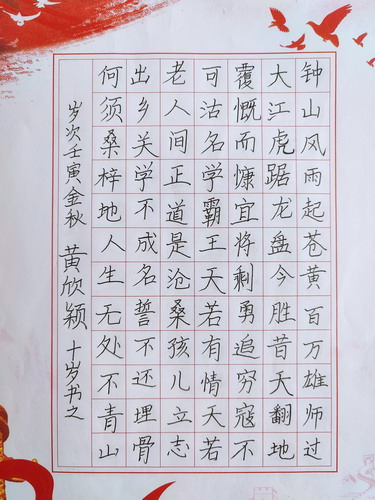 钟山风雨起苍黄百万雄师过
大江虎踞龙盘今胜昔天翻地
覆慨而慷宜将剩勇追穷寇不
可沽名学霸王天若有情天若
老人间正道是沧桑孩儿立志
出乡关学不成名誓不还埋骨
何须桑梓地人生无处不青山
岁次壬寅金秋 黄欣颖 十岁书之